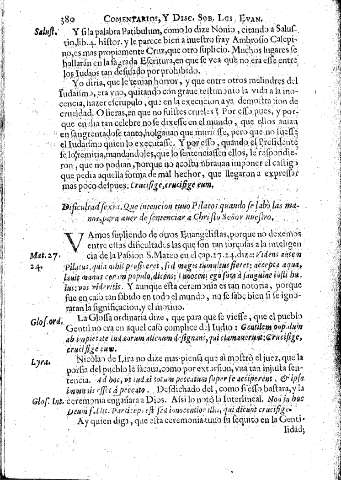 380 COMENTARIOS, Y DISC. SOB. LOS EVAN.
Salust. Y si la palabra Patibulum, como lo dize Nonio, citando a Salus-
tio, lib. 4. histor. y le parece bien a nuestro fray Ambrosio Calepi-
no, es mas propiamente Cruz, que otro suplicio. Muchos lugares se
hallarán en la sagrada Escritura, en que se vea que no era esse entre
los Iudios tan desusado por prohibido.
Yo diria, que le tenian horror, y que entre otros melindres del
Iudaismo, era vno, quitando con graue testimonio la vida a la ino-
cencia, hazer escrupulo, que en la execucion aya demostracion de
crueldad. O fieras, en que no fuistes crueles? Por esso pues, y por-
que en dia tan celebre no se dixesse en el mundo, que ellos auian
ensangrentadose tanto, holgauan que muriesse, pero que no fuesse
el Iudaismo quien lo executasse. Y por esso, quando el Presidente
se lo remitia, mandandoles, que lo sentenciassen ellos, le respondie-
ron, que no podian, porque no acostumbrauan imponer el castigo
que pedia aquella forma de mal hechor, que llegaron a expressar
mas poco despues. Crucifige, crucifige eum.
Dificultad Que intencion tuuo Pilatos quando se labò las ma-
nos, para auer de sentenciar a Christo Señor nuestro.
VAmos supliendo de otros Euangelistas, porque no dexemos
entre estas dificultades las que son tan torquidas a la inteligen
Mat. 27. cia de la Passion S. Mateo en el cap. 27. 24. dize: Videns autem
24. Pilatus, quia nihil proficeret, sed magis tumultus fieret: accepta aqua,
lauit manus coram populo, dicens: innocens ego sum à sanguine iusti hu-
ius: vos videritis. Y aunque esta ceremonia es tan notoria, porque
fue en caso tan sabido en todo el mundo, no se sabe bien si se igno-
ràran la significacion, y el morino.
Glos. ord. La Glossa ordinaria dize, que para que se viesse, que el pueblo
Gentil no era en aquel caso complice del Iudio: Gentilem populum
ab impietate iudæorum alienum designans, qui clamauerunt; Crucifige,
crucifige eum.
Lyra. Nicolao de Lira no dize mas: piensa que al mostrò el juez, que la
porfia del pueblo le sacaua, como por extorsion, vna tan injusta sen-
tencia. Ad hoc, vt iudæi totum peccatum super se acciperent, & ipse
immunis esset à peccato. Desdichado del, como si esso bastara, y la
Glos. Int. ceremonia engañara a Dios. Assi lo notò la Interlineal. Non in hoc
Particeps est sed innocentior illis, qui dicunt crucifige.
Ay quien diga, que esta ceremonia tuuo su sequito en la Genti-
lidad;